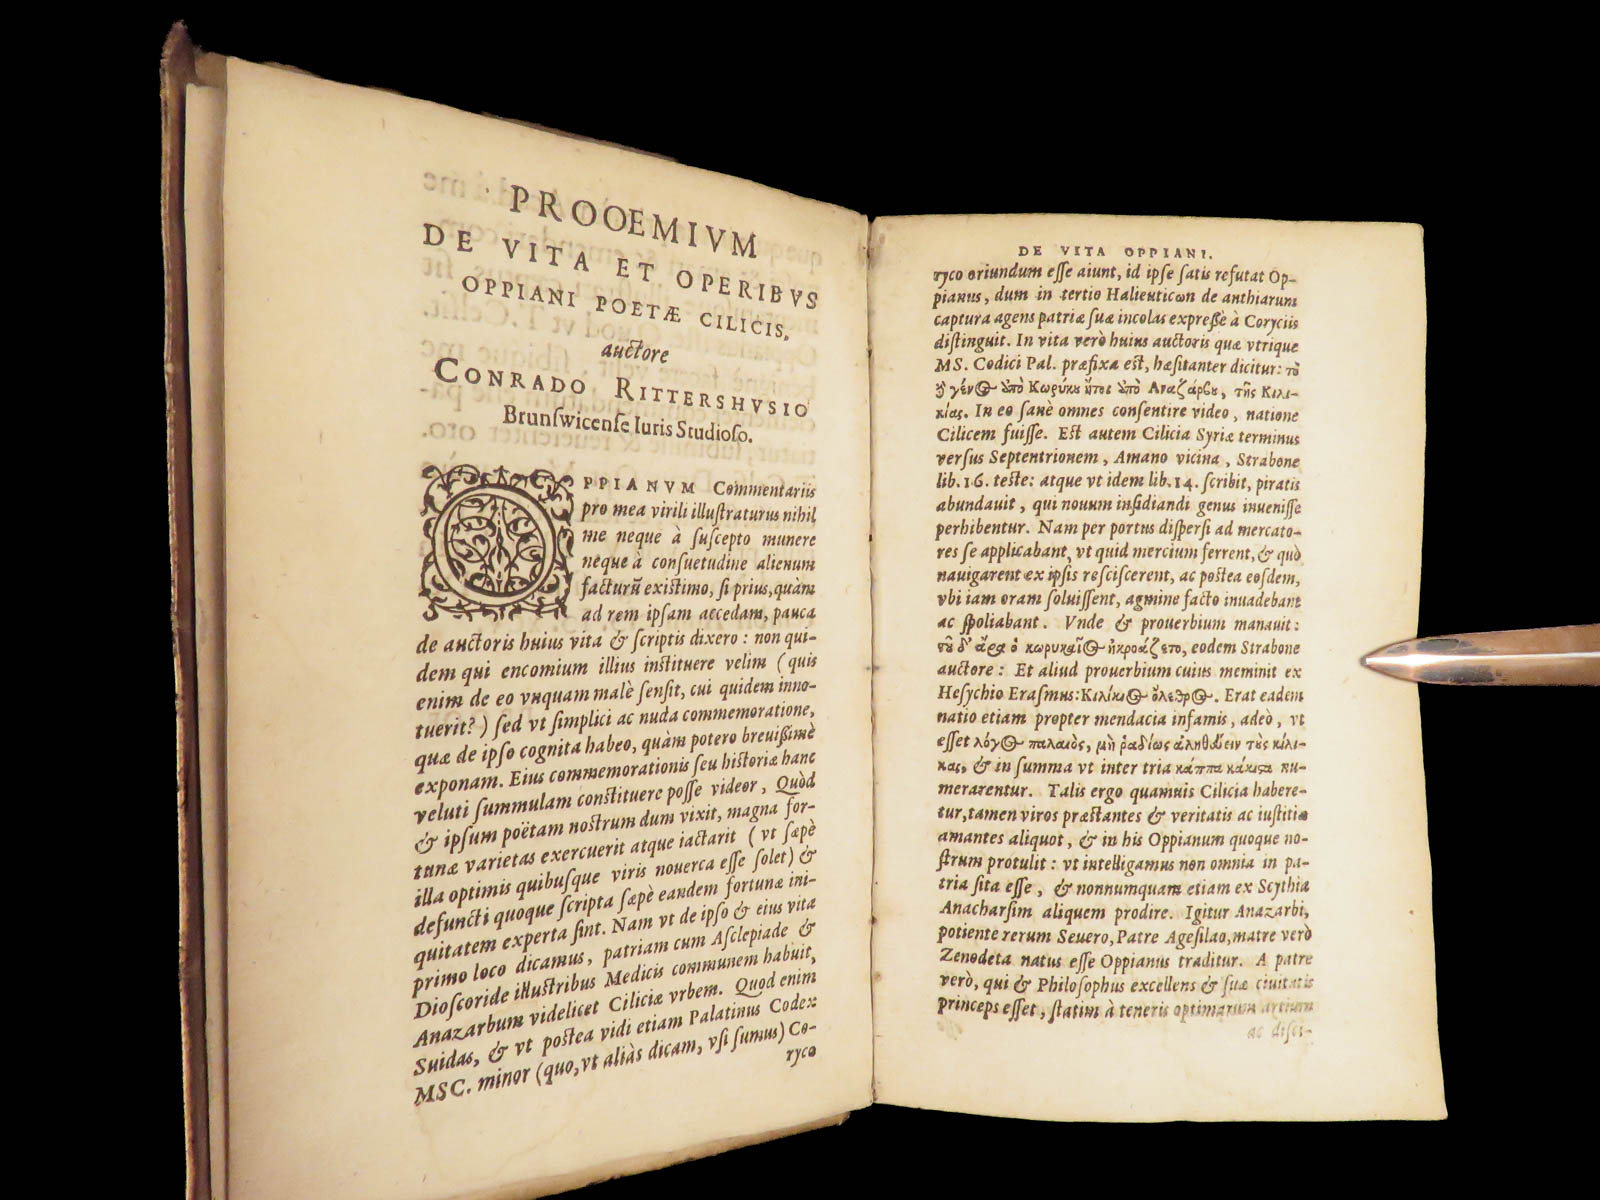 PROOEMIVM
DE VITA ET OPERIBVS
OPPIANI POETÆ CILICIS,
auctore
CONRADO RITTERSHVSIO
Brunſwicenſe Iuris Studioſo.
OPPIANVM Commentariis
pro mea virili illuſtraturus nihil
me neque à ſuſcepto munere
neque à conſuetudine alienum
facturũ exiſtimo, ſi prius, quàm
ad rem ipſam accedam, pauca
de auctoris huius vita & ſcriptis dixero: non qui-
dem qui encomium illius inſtituere velim (quis
enim de eo vnquam malè ſenſit, cui quidem inno-
tuerit?) ſed vt ſimplici ac nuda commemoratione,
quæ de ipſo cognita habeo, quàm potero breuißimè
exponam. Eius commemorationis ſeu hiſtoriæ hanc
veluti ſummulam conſtituere poſſe videor, Quòd
& ipſum poëtam noſtrum dum vixit, magna for-
tunæ varietas exercuerit atque iactarit (vt ſæpè
illa optimis quibuſque viris nouerca eſſe ſolet) &
defuncti quoque ſcripta ſæpè eandem fortunæ ini-
quitatem experta ſint. Nam vt de ipſo & eius vita
primo loco dicamus, patriam cum Aſclepiade &
Dioſcoride illuſtribus Medicis communem habuit,
Anazarbum videlicet Ciliciæ vrbem. Quod enim
Suidas, & vt poſtea vidi etiam Palatinus Codex
MSC. minor (quo, vt aliàs dicam, vſi ſumus) Co-
ryco
DE VITA OPPIANI.
ryco oriundum eſſe aiunt, id ipſe ſatis refutat Op-
pianus, dum in tertio Halieuticωn de anthiarum
captura agens patriæ ſuæ incolas expreßè à Coryciis
diſtinguit. In vita verò huius auctoris quæ vtrique
MS. Codici Pal. præfixa eſt, hæſitanter dicitur: τὸ
ἢ γέν⊙ ὑπὸ Κωρύκου ἤτοι ὑπὸ Αναζάρβου, τῆς Κιλι-
κίας. In eo ſanè omnes conſentire video, natione
Cilicem fuiſſe. Eſt autem Cilicia Syriæ terminus
verſus Septentrionem, Amano vicina, Strabone
lib. 16. teſte: atque vt idem lib. 14. ſcribit, piratis
abundauit, qui nouum inſidiandi genus inueniſſe
perhibentur. Nam per portus diſperſi ad mercato-
res ſe applicabant, vt quid mercium ferrent, & quò
nauigarent ex ipſis reſciſcerent, ac poſtea eoſdem,
vbi iam oram ſoluiſſent, agmine facto inuadebant
ac ſpoliabant. Vnde & prouerbium manauit:
τοῦ δ' ἄρα ὁ κωρυκαῖ⊙ ἠκροάζετο, eodem Strabone
auctore: Et aliud prouerbium cuius meminit ex
Heſychio Eraſmus: Κιλίκι⊙ ὄλεθρ⊙. Erat eadem
natio etiam propter mendacia infamis, adeò, vt
eſſet λόγ⊙ παλαιὸς, μὴ ῥαδίως ἀληθεύειν τοὺς κίλι-
κας, & in ſumma vt inter tria κάππα κάκιςα nu-
merarentur. Talis ergo quamuis Cilicia habere-
tur, tamen viros præſtantes & veritatis ac iuſtitiæ
amantes aliquot, & in his Oppianum quoque no-
ſtrum protulit: vt intelligamus non omnia in pa-
tria ſita eſſe, & nonnumquam etiam ex Scythia
Anacharſim aliquem prodire. Igitur Anazarbi,
potiente rerum Seuero, Patre Ageſilao, matre verò
Zenodeta natus eſſe Oppianus traditur. A patre
verò, qui & Philoſophus excellens & ſuæ ciuitatis
princeps eſſet, ſtatim à teneris optimarum artium
ac diſci-